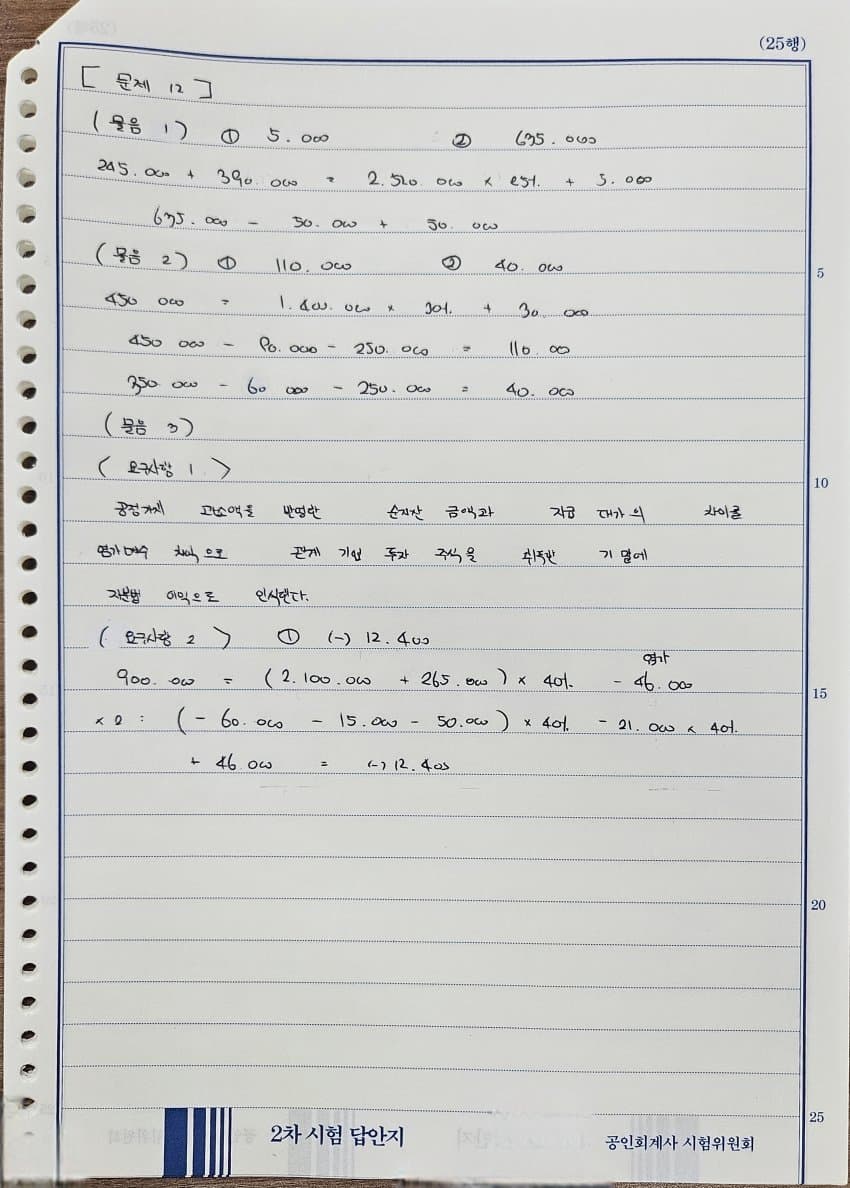 (25행)
[ 문제 12 ]
(물음 1) ① 5.000 ② 635.000
245.000 + 390.000 = 2.520.000 × 25% + 5.000
635.000 - 50.000 + 50.000
(물음 2) ① 110.000 ② 40.000
5
450 000 = 1.400.000 × 30% + 30.000
450 000 - 90.000 - 250.000 = 110.00
350 000 - 60 000 - 250.000 = 40.000
(물음 3)
〈요구사항 1〉
10
공정가치 감소액을 반영한 순자산 금액과 지급 대가의 차이를
염가매수 차익으로 관계 기업 투자 주식을 취득한 기말에
지분법 이익으로 인식한다.
〈요구사항 2〉 ① (-) 12.400
염가
900.000 = (2.100.000 + 265.000) × 40% - 46.000
15
(- 60.000 - 15.000 - 50.000) × 40% - 21.000 × 40%
+ 46.000 = (-) 12.400
20
25
2차 시험 답안지
공인회계사 시험위원회